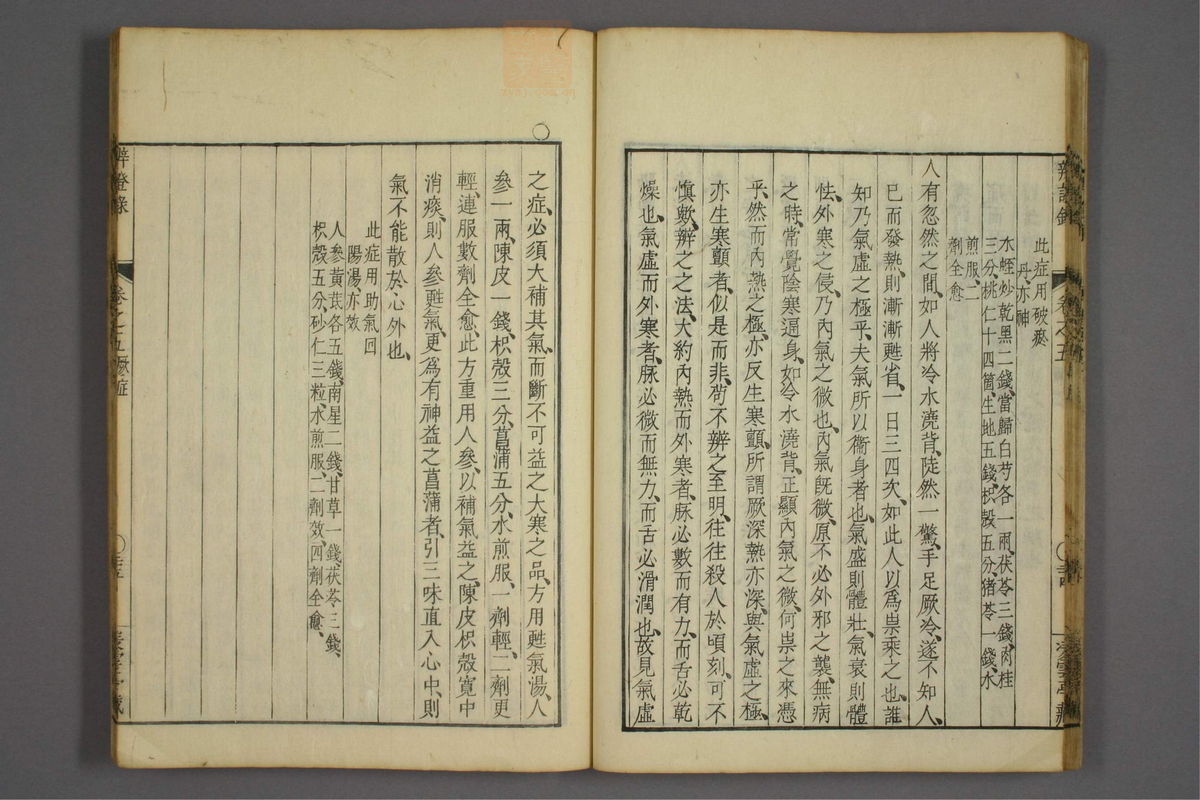 此症用破瘀
丹亦神
水蛭炒乾黑二錢當歸白芍各一兩茯苓三錢肉桂
三分桃仁十四箇生地五錢枳殼五分猪苓一錢水
煎服二
劑全愈
人有忽然之間如人將冷水澆背陡然一驚手足厥冷遂不知人
已而發熱則漸漸甦省一日三四次如此人以爲祟乘之也誰
知乃氣虛之極乎夫氣所以衞身者也氣盛則體壯氣衰則體
怯外寒之侵乃內氣之微也內氣旣微原不必外邪之襲無病
之時常覺陰寒逼身如冷水澆背正顯內氣之微何祟之來憑
乎然而內熱之極亦反生寒顫所謂厥深熱亦深與氣虛之極
亦生寒顫者似是而非苟不辨之至明往往殺人於頃刻可不
慎歟辨之之法大約內熱而外寒者脉必數而有力而舌必乾
燥也氣虛而外寒者脉必微而無力而舌必滑潤也故見氣虛
之症必須大補其氣而斷不可益之大寒之品方用甦氣湯人
參一兩陳皮一錢枳殼三分菖蒲五分水煎服一劑輕二劑更
輕連服數劑全愈此方重用人參以補氣益之陳皮枳殼寬中
消痰則人參甦氣更爲有神益之菖蒲者引三味直入心中則
氣不能散於心外也
此症用助氣回
陽湯亦效
人參黃芪各五錢南星二錢甘草一錢茯苓三錢
枳殼五分砂仁三粒水煎服二劑效四劑全愈
卷之五厥症